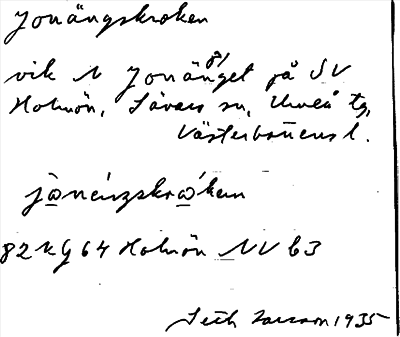 Jonängskroken
vik N Jonänget på SV
Holmön, Sävars sn, Umeå tg,
Västerbottens l.
82 k G 64 Holmön NV b3
Seth Larsson 1935